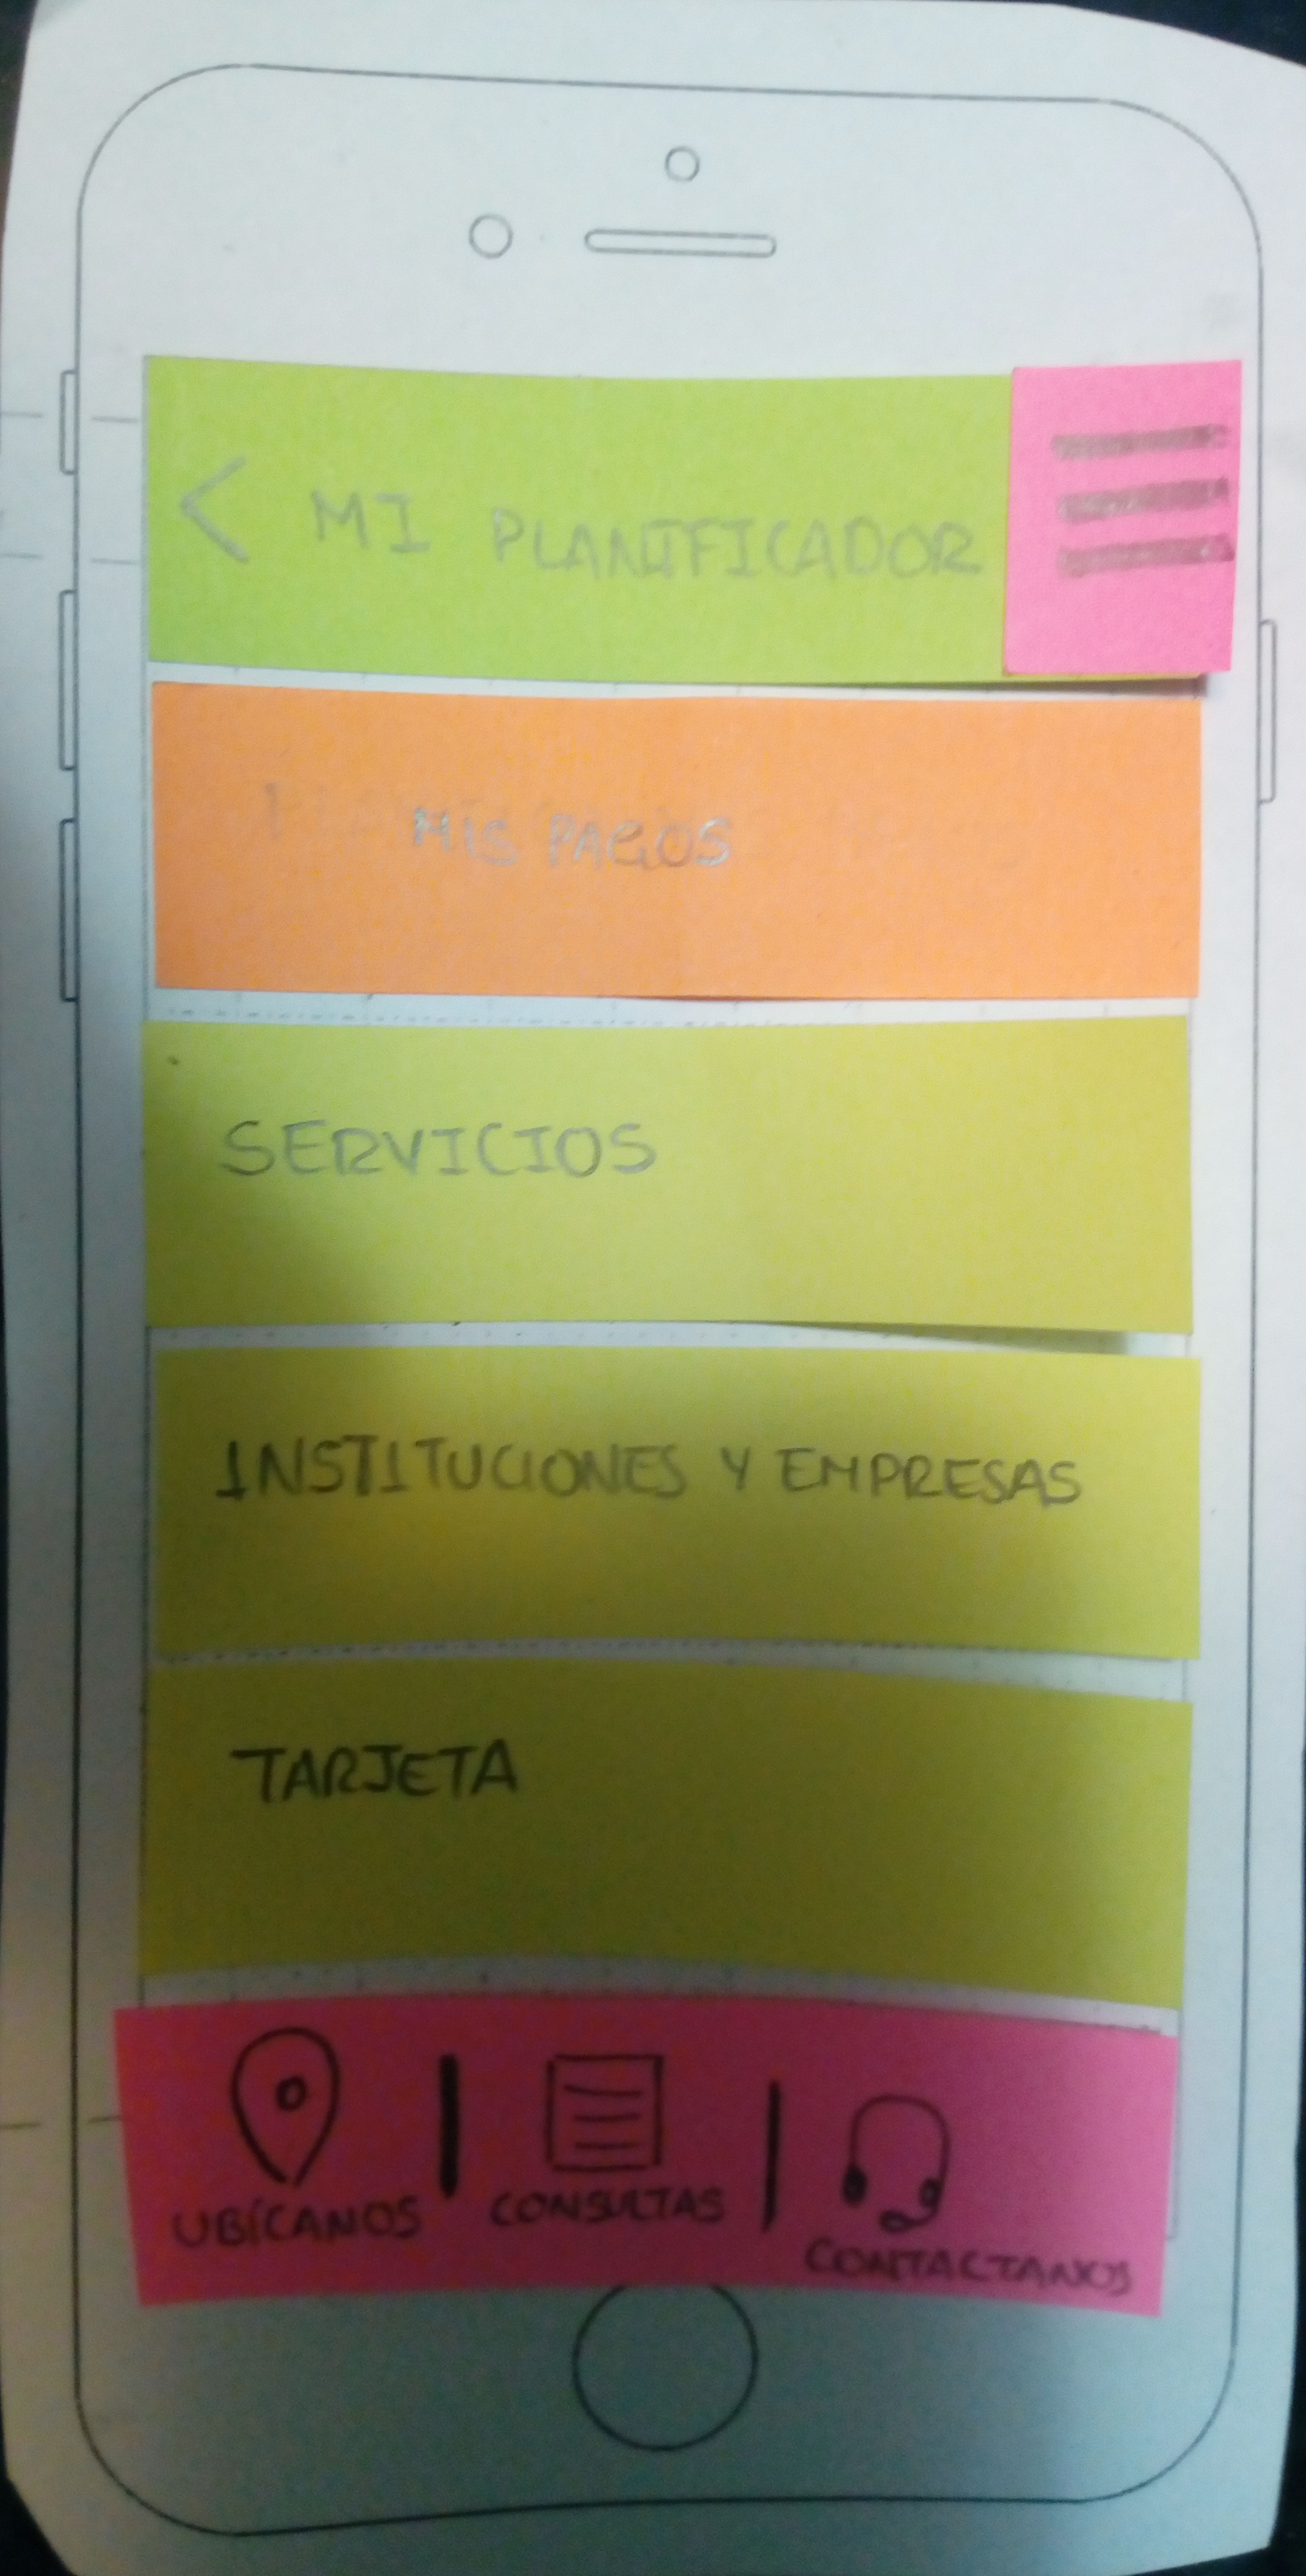 < MI PLANIFICADOR
MIS PAGOS
SERVICIOS
INSTITUCIONES Y EMPRESAS
TARJETA
UBÍCANOS
CONSULTAS
CONTACTANOS